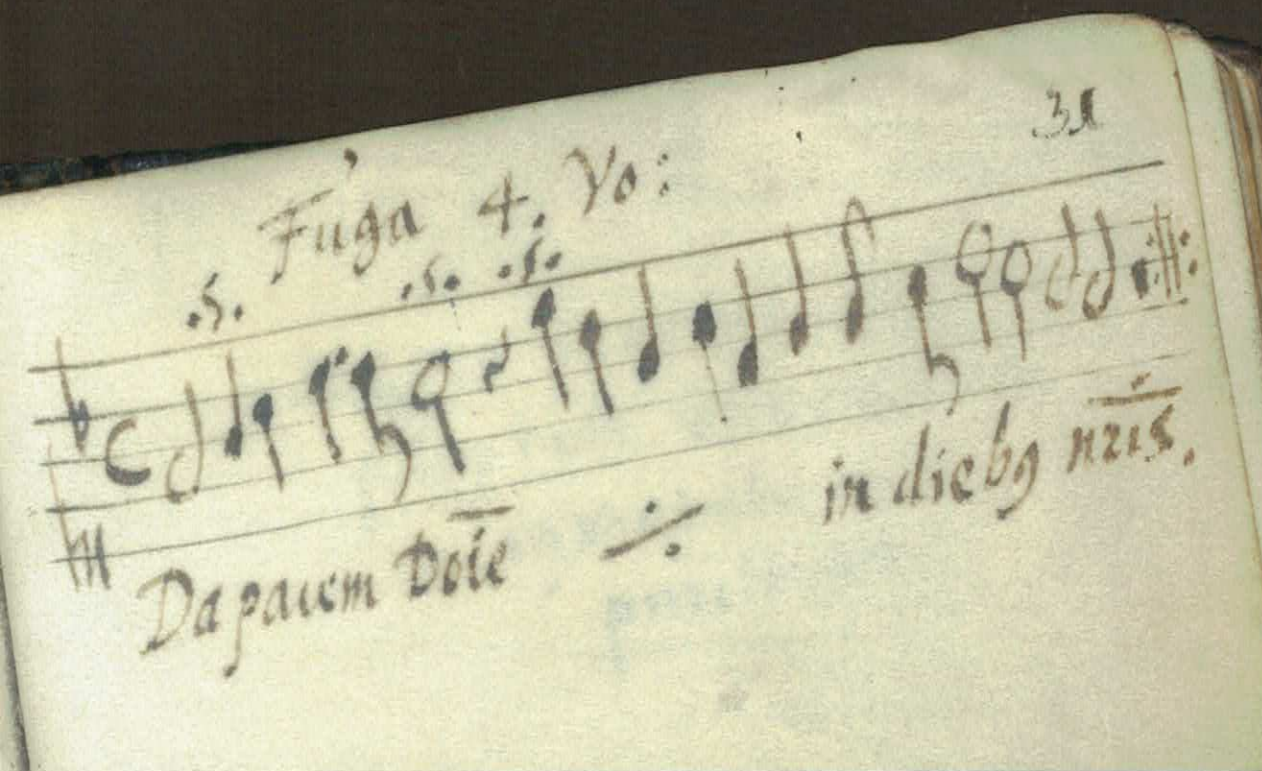 31
Fuga 4. Vo:
.S. .S. .S.
Da pacem Dōie ⁒ in diebꝰ nr̄is.